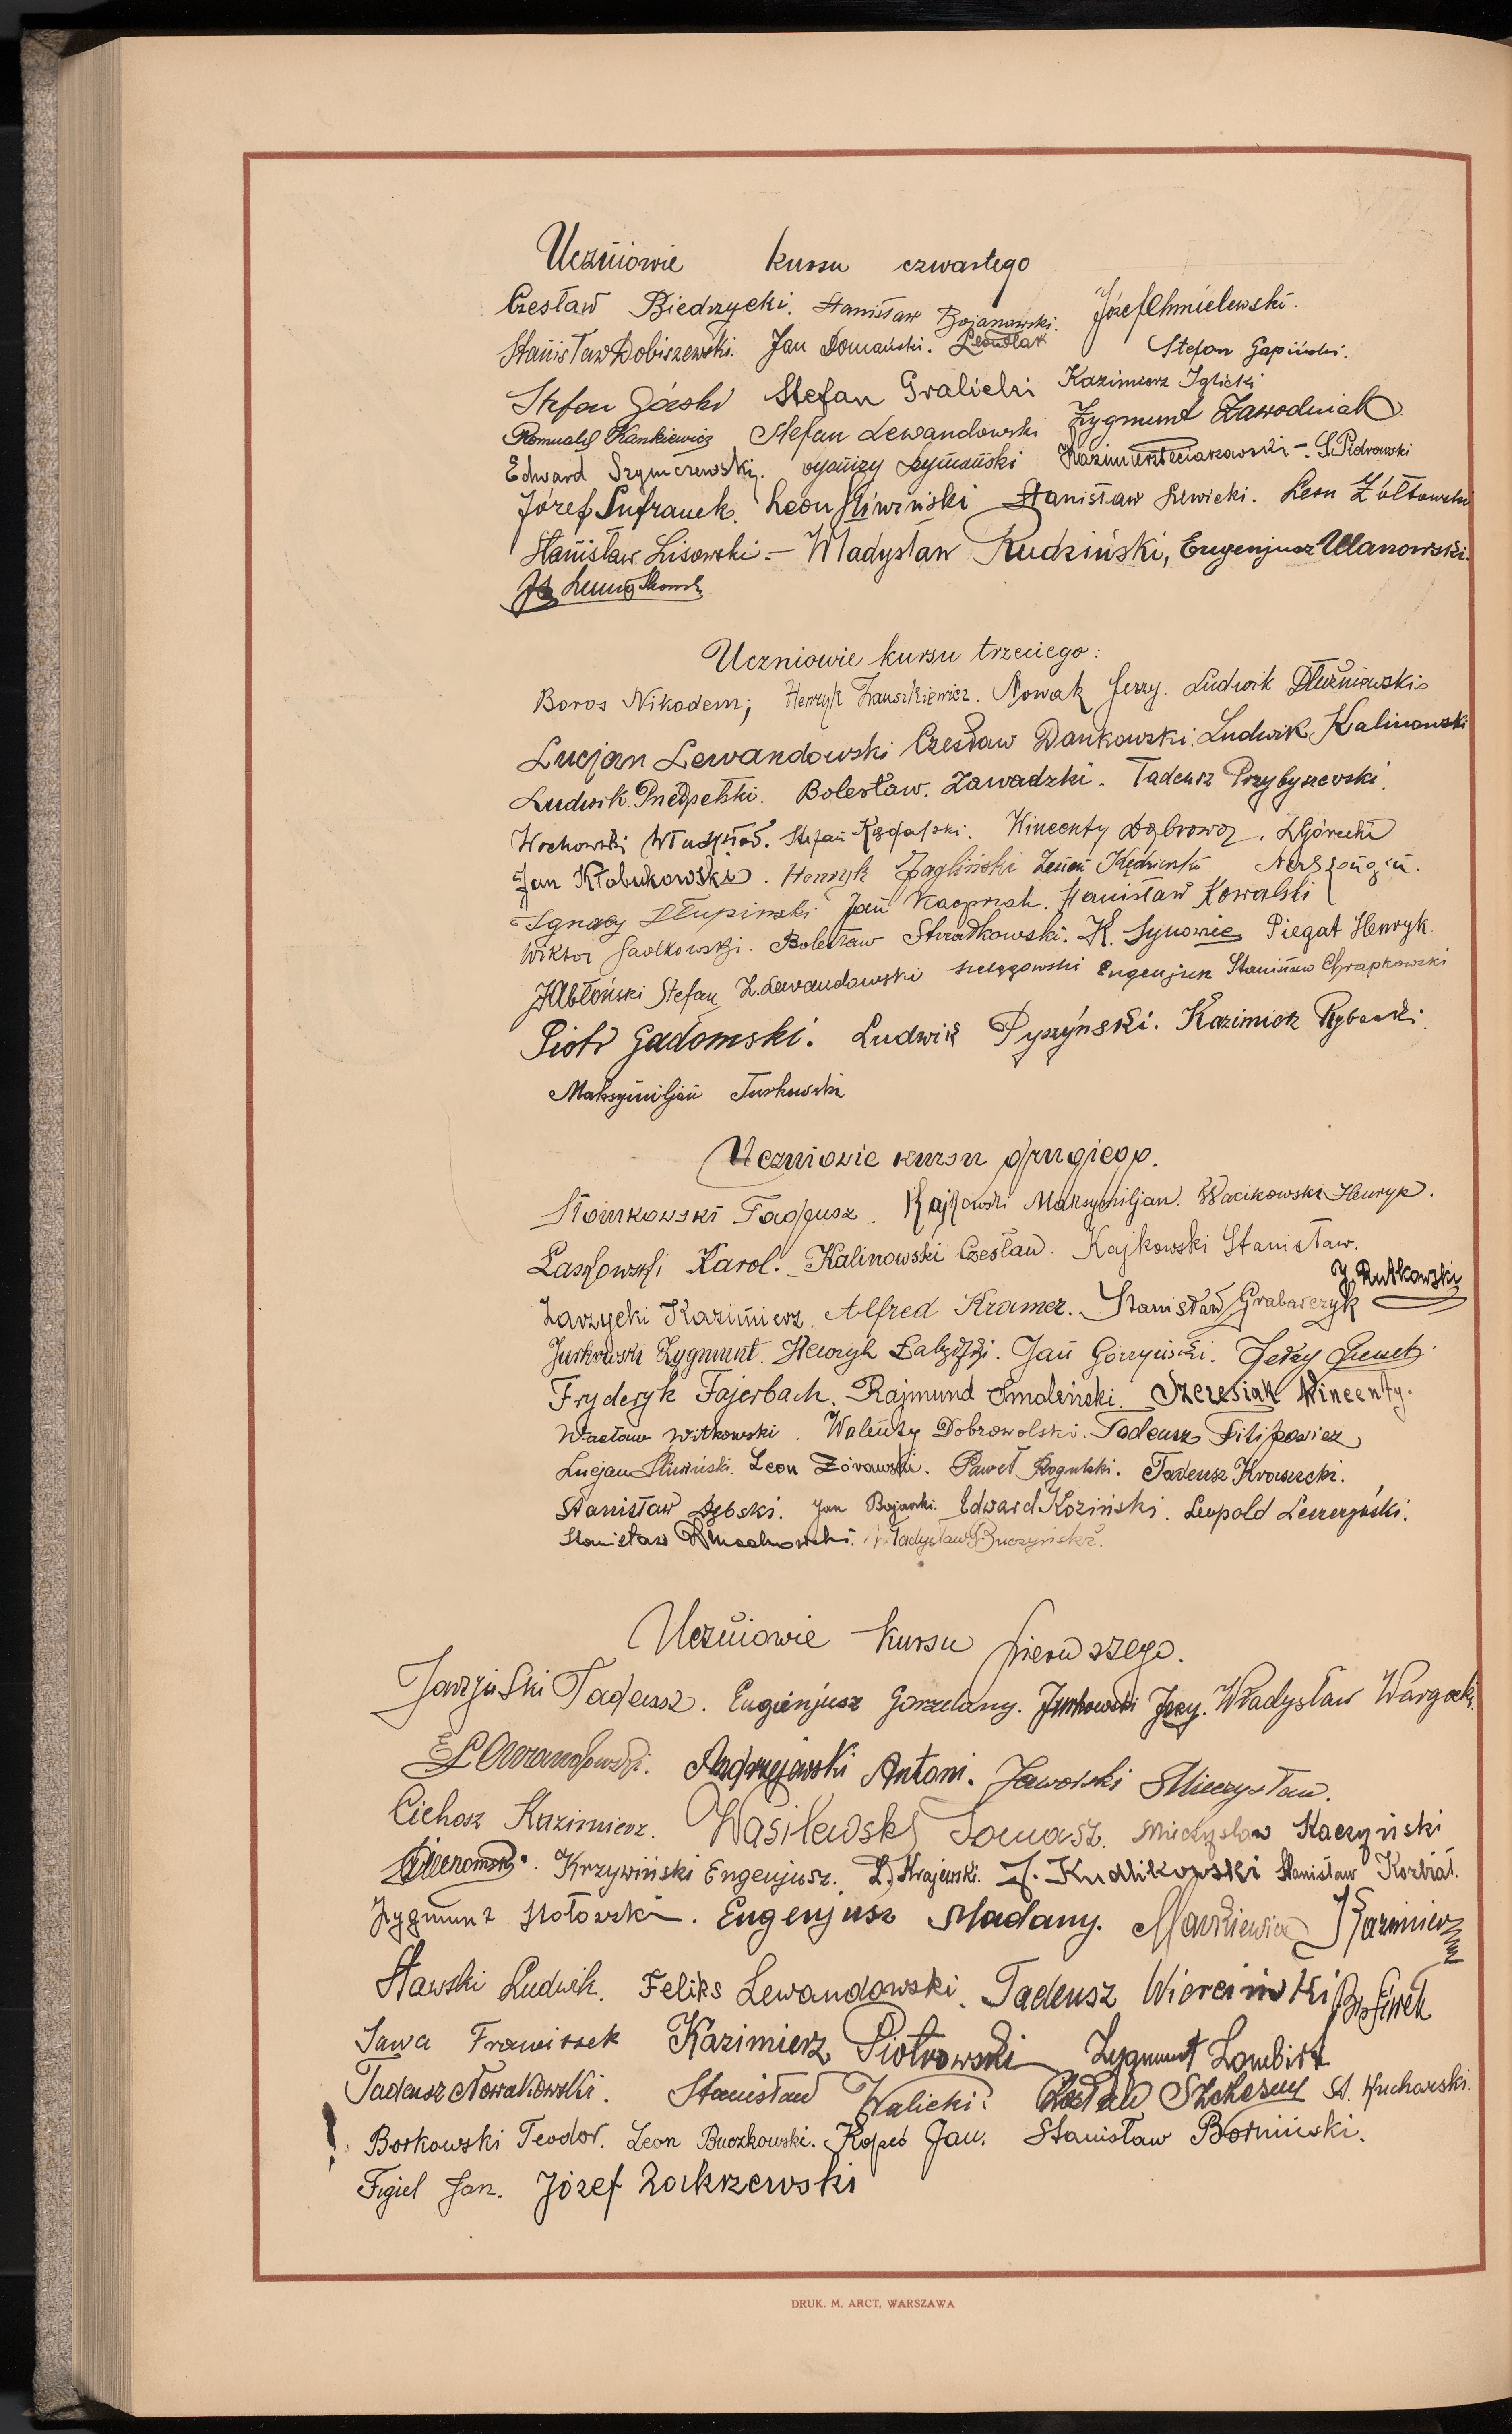 Uczniowie kursu czwartego
Czesław Biedrzycki. Stanisław Bojanowski. Józef Chmielewski.
Stanisław Dobiszewski. Jan Domański. Stefan Gapiński.
Stefan Górski Stefan Gralicki Kazimierz Iglicki
Romuald Kankiewicz Stefan Lewandowski Zygmunt Zawodniak
Edward Szymczewski. Szymański S. Piotrowski
Józef Sufranek. Leon Śliwiński Stanisław Leon Żółtowski
Stanisław Lisowski – Władysław Rudziński, Eugenjusz Ulanowski.
Uczniowie kursu trzeciego:
Boros Nikodem; Henryk Nowak Jerzy. Ludwik Dłużniewski
Lucjan Lewandowski Czesław Dankowski. Ludwik Kalinowski
Ludwik Bolesław. Zawadzki. Tadeusz Przybyszewski.
Wochowski Stefan Kincenty L. Górecki
Jan Kłobukowski. Henryk Żagliński Zenon
Ignacy Słupinski Jan Kacprzak. Stanisław Kowalski
Wiktor Bolesław K. Synowiec Piegat Henryk.
Jabłoński Stefan Z. Lewandowski Eugenjusz Stanisław Chrapkowski
Piotr Gadomski. Ludwik Pyszyński. Kazimierz Rybacki.
Maksymiljan Turkowski
Uczniowie kursu drugiego.
Słomkowski Tadeusz. Kajkowski Maksymiljan. Wacikowski Henryk.
Laskowski Karol. Kalinowski Czesław. Kajkowski Stanisław.
J. Rutkowski
Zarzycki Kazimierz. Alfred Kramer. Stanisław Grabarczyk
Jurkowski Zygmunt. Henryk Łabędzki. Jan Górzyński. Jerzy
Fryderyk Fajerbach. Rajmund Smoleński. Szczesiak Wincenty.
Wacław Witkowski. Walenty Dobrowolski. Tadeusz Filipowicz
Lucjan Śliwiński. Leon Żórawski. Paweł Rogulski. Tadeusz Krawiecki.
Stanisław Dębski. Jan Bojarski. Edward Koziński. Leopold Leszczyński.
Stanisław Władysław Buczyński.
Uczniowie kursu pierwszego.
Jarzyński Tadeusz. Eugienjusz Gorzelany. Jurkowski Jerzy. Władysław Wargocki.
E Lewandowski. Andrzejewski Antoni. Jaworski Mieczysław.
Cichosz Kazimierz. Wasilewski Tomasz. Mieczysław Kaczyński
Krzywiński Eugenjusz. L. Krajewski. J. Kudlikowski Stanisław Koziat.
Zygmunt Stołowski. Eugenjusz Madany. Mackiewicz Kazimierz
Sławski Ludwik. Feliks Lewandowski. Tadeusz Wierciński B. Siwek
Sawa Franciszek Kazimierz Piotrowski Zygmunt Lombirt
Tadeusz Nowakowski. Stanisław Walicki. Szczęsny St. Kucharski.
Borkowski Teodor. Leon Buczkowski. Kopeć Jan. Stanisław Bormiński.
Figiel Jan. Józef Zakrzewski
DRUK. M. ARCT, WARSZAWA